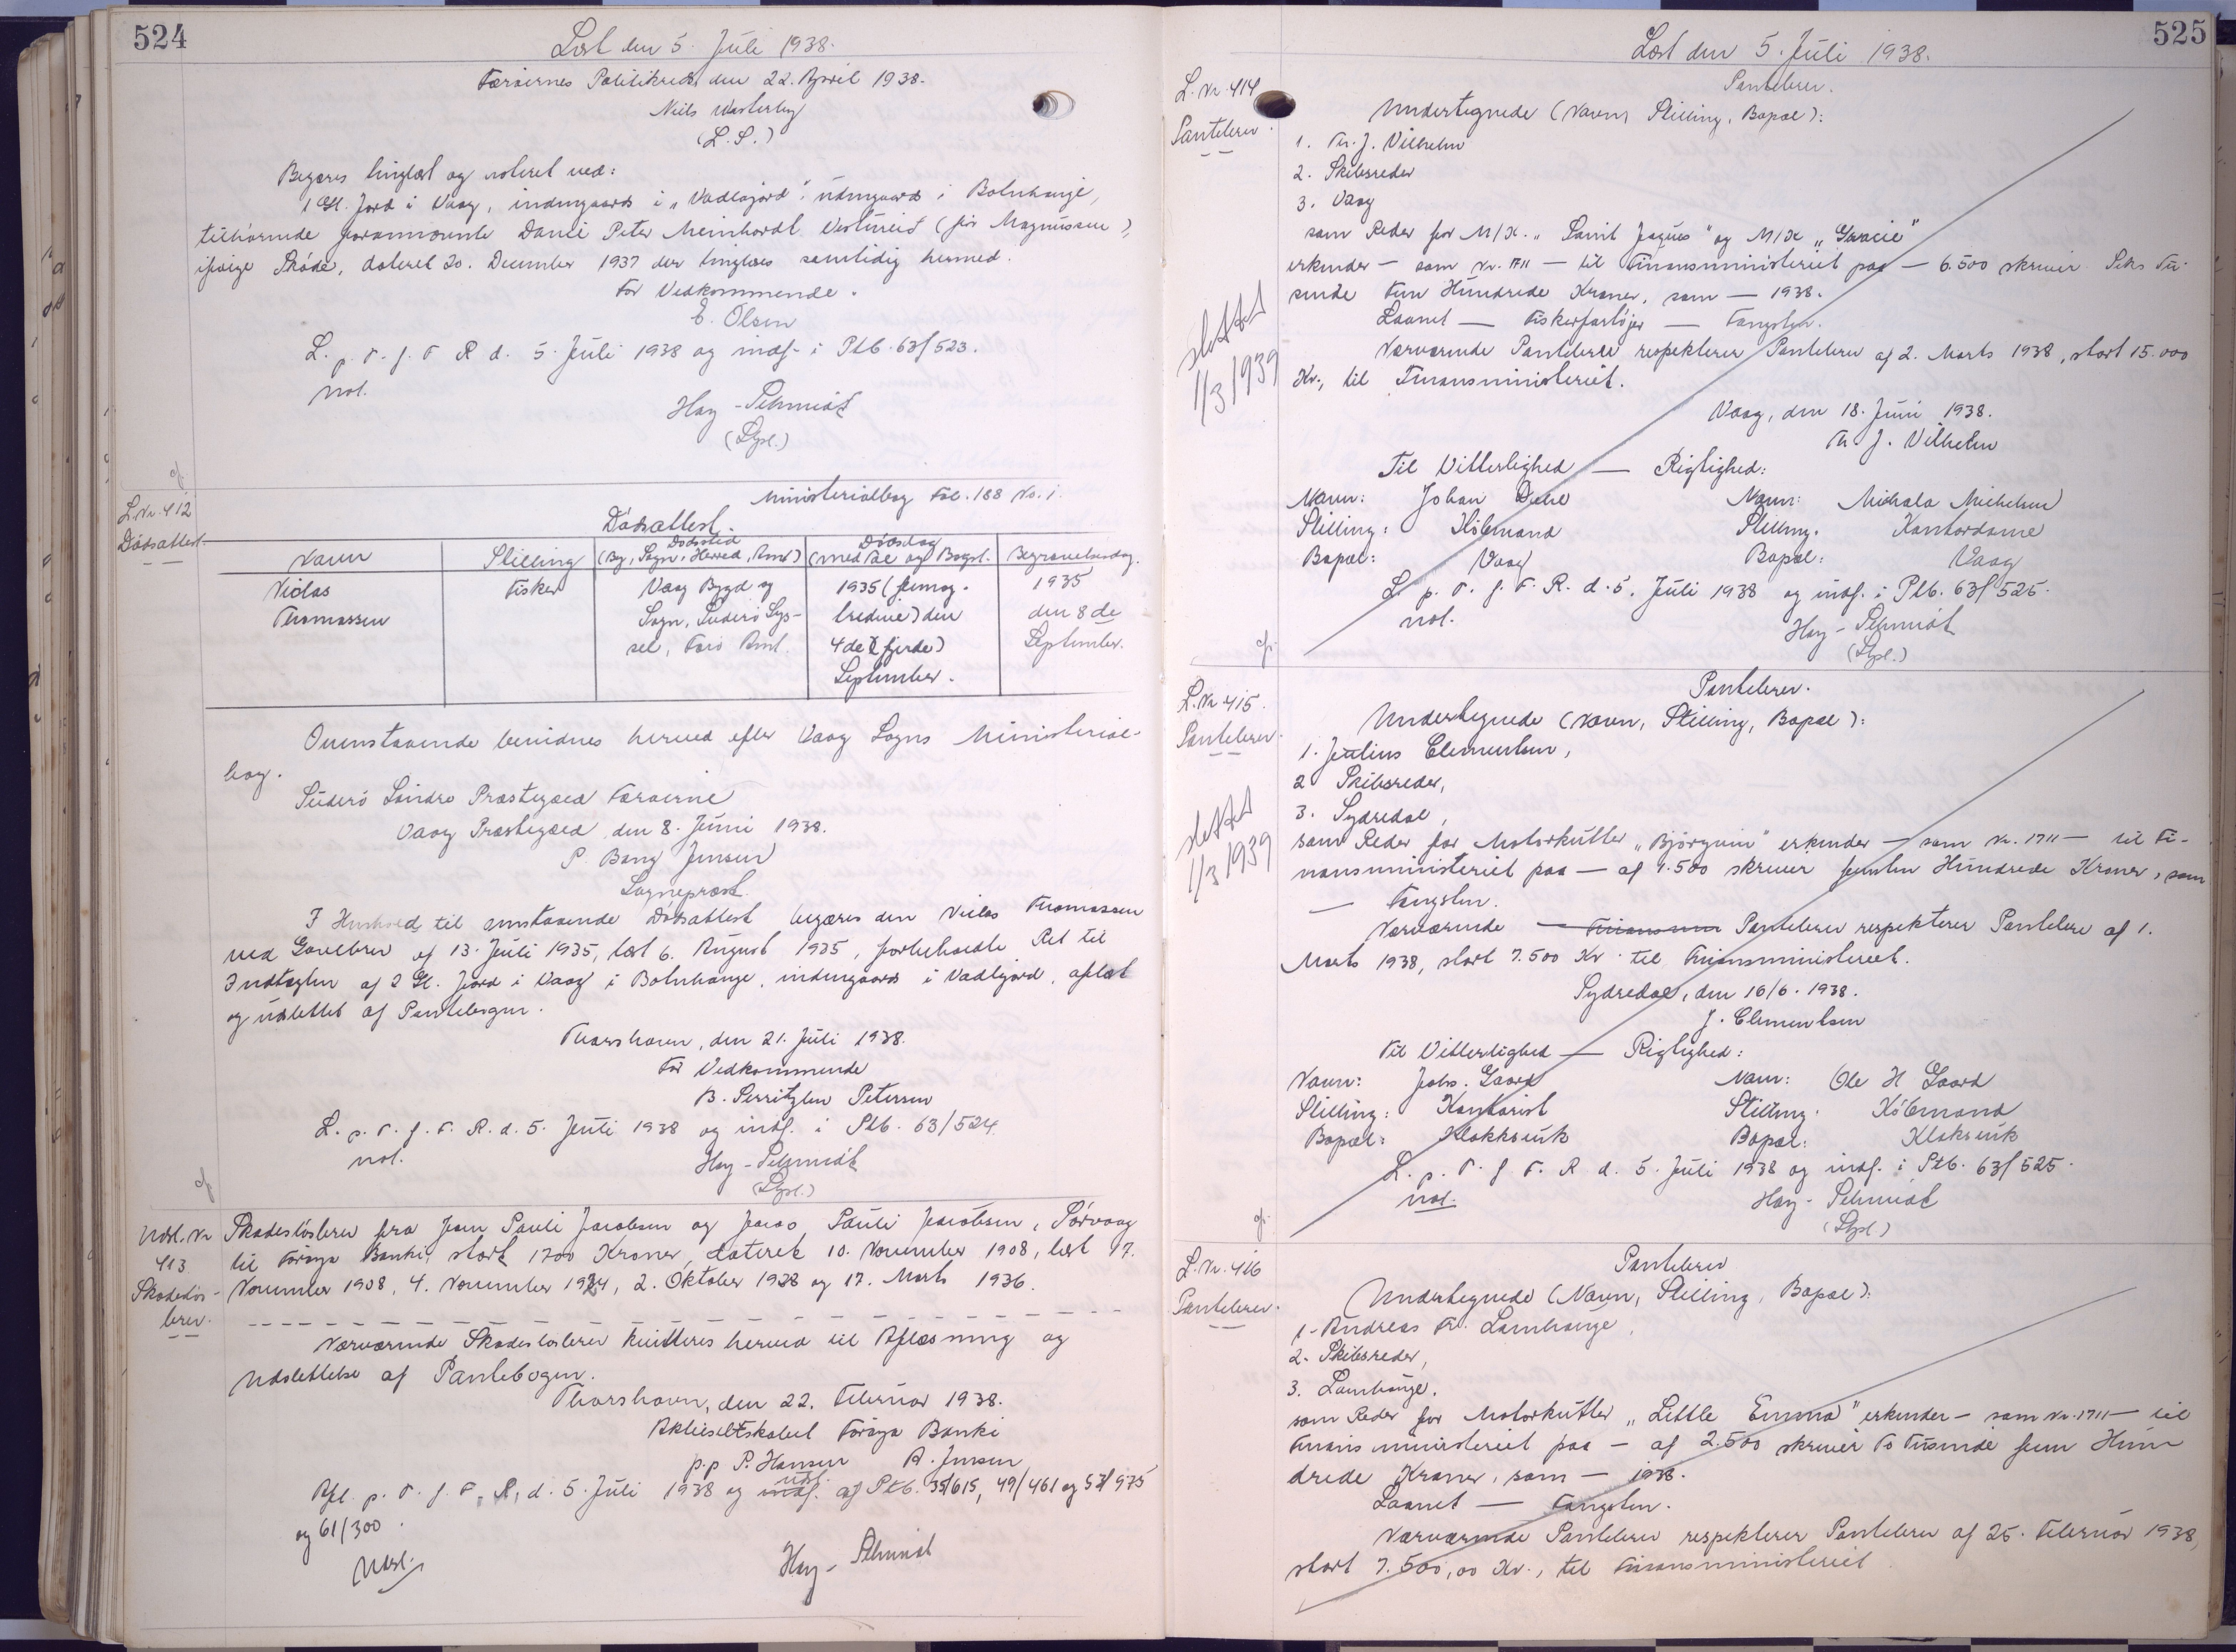 524
Læst den 5. Juli 1938.
Færøernes Politikreds, den 22. April 1938.
Niels Westerby
(L.S.)
Begæres tinglæst og noteret ved:
1 Gl. Jord i Vaag, indengaards i "Vadlagjord", udengaards i Botnhauge,
tilhørende forannævnte Daniel Peter Meinhardt Vestureid (før Magnussen),
ifølge Skøde, dateret 20. December 1937 der tinglæses samtidig hermed.
For Vedkommende.
E. Olsen
L. p. T. f. F. R d. 5. Juli 1938 og indf. i Ptb. 63/523.
not.
Hoy-Schmidt
(Lgsl.)
L.Nr. 412
Dødsattest.
Ministerialbog Fol. 188 No. 1.
Dødsattest.
Navn
Stilling
Dødssted
(By, Sogn, Herred, Amt)
Dødsdag
(med Tal og Bogst.
Begravelsesdag.
Niclas
Thomassen
Fisker
Vaag Bygd og
Sogn, Suderø Sys-
sel, Færø Amt.
1935 (femog-
tredive) den
4de (fjerde)
September.
1935
den 8de
September.
Ovenstaaende bevidnes herved efter Vaag Sogns Ministerial-
bog.
Suderø Søndre Præstegæld Færøerne
Vaag Præstegæld, den 8. Juni 1938.
P. Bang Jensen
Sognepræst.
I Henhold til omstaaende Dødsattest begæres den Niclas Thomassen
ved Gavebrev af 13. Juli 1935, læst 6. August 1935, forbeholdte Ret til
Indtægten af 2 Gl. Jord i Vaag i Botnhauge, indengaards i Vadlgjord, aflæst
og udslettet af Pantebogen.
Thorshavn, den 21. Juli 1938.
For Vedkommende
B. Serritzlev Petersen
L. p. T. f. F. R. d. 5. Juli 1938 og indf. i Ptb. 63/524
not.
Hoy-Schmidt
(Lgsl.)
Udsl. Nr
413
Skadesløs-
brev.
Skadesløsbrev fra Joen Pauli Jacobsen og Jacob Pauli Jacobsen, Sørvaag
til Føroya Banki, stort 1700 Kroner, dateret 10. November 1908, læst 17.
November 1908, 4. November 1924, 2. Oktober 1928 og 17. Marts 1936.
Nærværende Skadesløsbrev kvitteres herved til Aflæsning og
Udslettelse af Pantebogen.
Thorshavn, den 22. Februar 1938.
Aktieselskabet Føroya Banki
p.p P. Hansen A. Jensen
Afl. p. T. f. F. R. d. 5. Juli 1938 og indf. udsl. af Ptb. 35/615, 49/461 og 53/975
og 61/300.
Udsl.
Hoy-Schmidt
525
Læst den 5. Juli 1938.
L. Nr 414
Pantebrev.
Pantebrev.
Undertegnede (Navn, Stilling, Bopæl):
1. Th. J. Vilhelm
2. Skibsreder
3. Vaag
som Reder for M/K. "Saint Jaques" og M/K "Gracie"
erkender — som Nr. 1711 — til Finansministeriet paa — 6.500 skriver Seks Tu-
sende Fem Hundrede Kroner, som — 1938.
Laanet — Fiskerfartøjer — Fangsten.
Nærværende Pantebrev respekterer Pantebrev af 2. Marts 1938, stort 15.000
Kr., til Finansministeriet.
slettet
1/3 1939
Vaag, den 18. Juni 1938.
Th J. Vilhelm
Til Vitterlighed — Rigtighed:
Navn: Johan Dahl Navn: Michala Michelsen
Stilling: Købmand Stilling: Kontordame
Bopæl: Vaag Bopæl: Vaag
L. p. T. f. F. R. d. 5. Juli 1938 og indf. i Ptb. 63/525.
not.
Hoy-Schmidt
(Lgsl.)
L. Nr 415.
Pantebrev.
Pantebrev.
Undertegnede (Navn, Stilling, Bopæl):
1. Julius Clementsen,
2 Skibsreder,
3. Sydredal,
som Reder for Motorkutter "Bjørgvin" erkender — som Nr. 1711 — til Fi-
nansministeriet paa — af 1.500 skriver femten Hundrede Kroner, som
— Fangsten.
Nærværende — Pantebrev respekterer Pantebrev af 1.
Marts 1938, stort 7.500 Kr. til Finansministeriet.
slettet
1/3 1939
Sydredal, den 16/6. 1938.
J. Clementsen
Til Vitterlighed — Rigtighed:
Navn: Johs. Gaard Navn: Ole H Gaard
Stilling: Kontorist Stilling: Købmand
Bopæl: Klakksvik Bopæl: Klaksvik
L. p. T. f. F. R d. 5. Juli 1938 og indf. i Ptb. 63/525.
not.
Hoy-Schmidt
(Lgsl.)
L. Nr. 416
Pantebrev.
Pantebrev
Undertegnede (Navn, Stilling, Bopæl):
1. Andreas Fr. Lamhauge,
2. Skibsreder,
3. Lamhauge.
som Reder for Motorkutter "Little Emma" erkender — som Nr. 1711 — til
Finansministeriet paa — af 2.500 skriver To Tusinde fem Hun-
drede Kroner, som — 1938.
Laanet — Fangsten.
Nærværende Pantebrev respekterer Pantebrev af 25. Februar 1938,
stort 7.500,00 Kr., til Finansministeriet